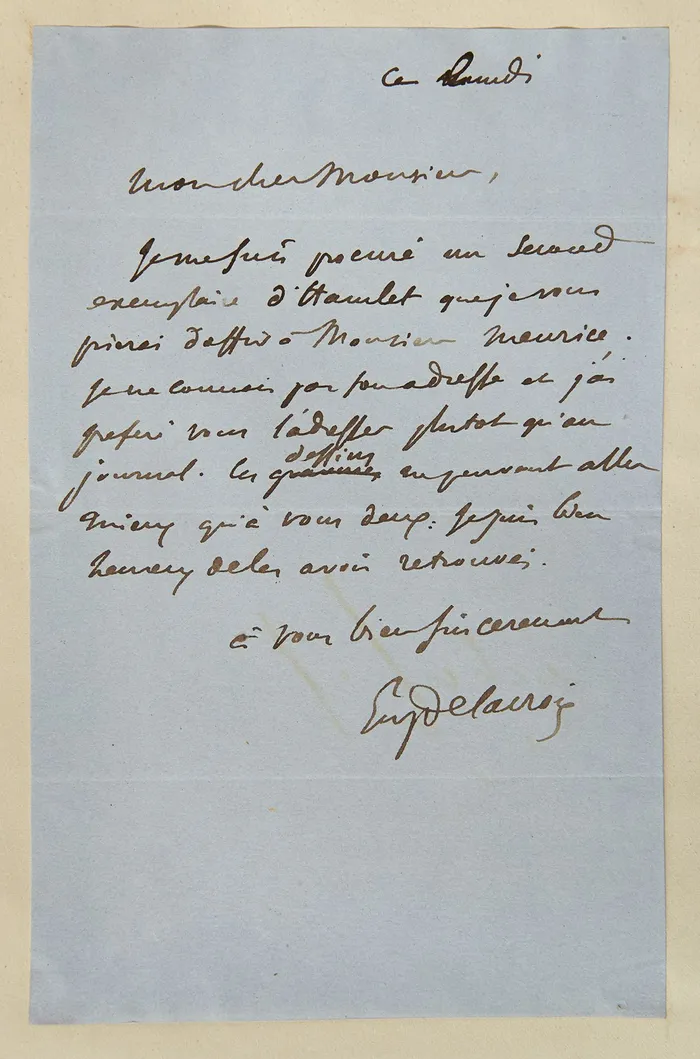 ce Lundi
Mon cher Monsieur,
Je me suis procuré un second
exemplaire d'Hamlet que je vous
prierai d'offrir à Monsieur Meurice.
Je ne connais pas son adresse et j'ai
preferé vous l'adresser plutot qu'au
journal. Ces dessins ne peuvent aller
mieux qu'à vous deux. Je suis bien
heureux de les avoir retrouvés.
à vous bien sincerement
EugDelacroix